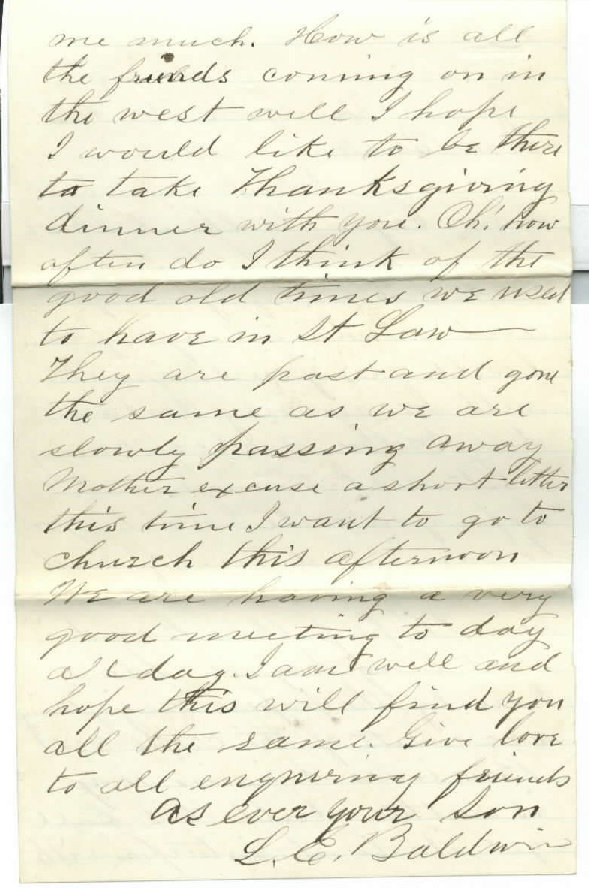 me much. How is all
the friends coming on in
the west well I hope
I would like to be there
to take Thanksgiving
dinner with you. Oh! how
often do I think of the
good old times we used
to have in St Law
They are past and gone
the same as we are
slowly passing away
Mother excuse a short letter
this time I want to go to
church this afternoon
We are having a very
good meeting to day
al day. I am well and
hope this will find you
all the same. Give love
to all enquiring friends
as ever your son
L. E. Baldwin